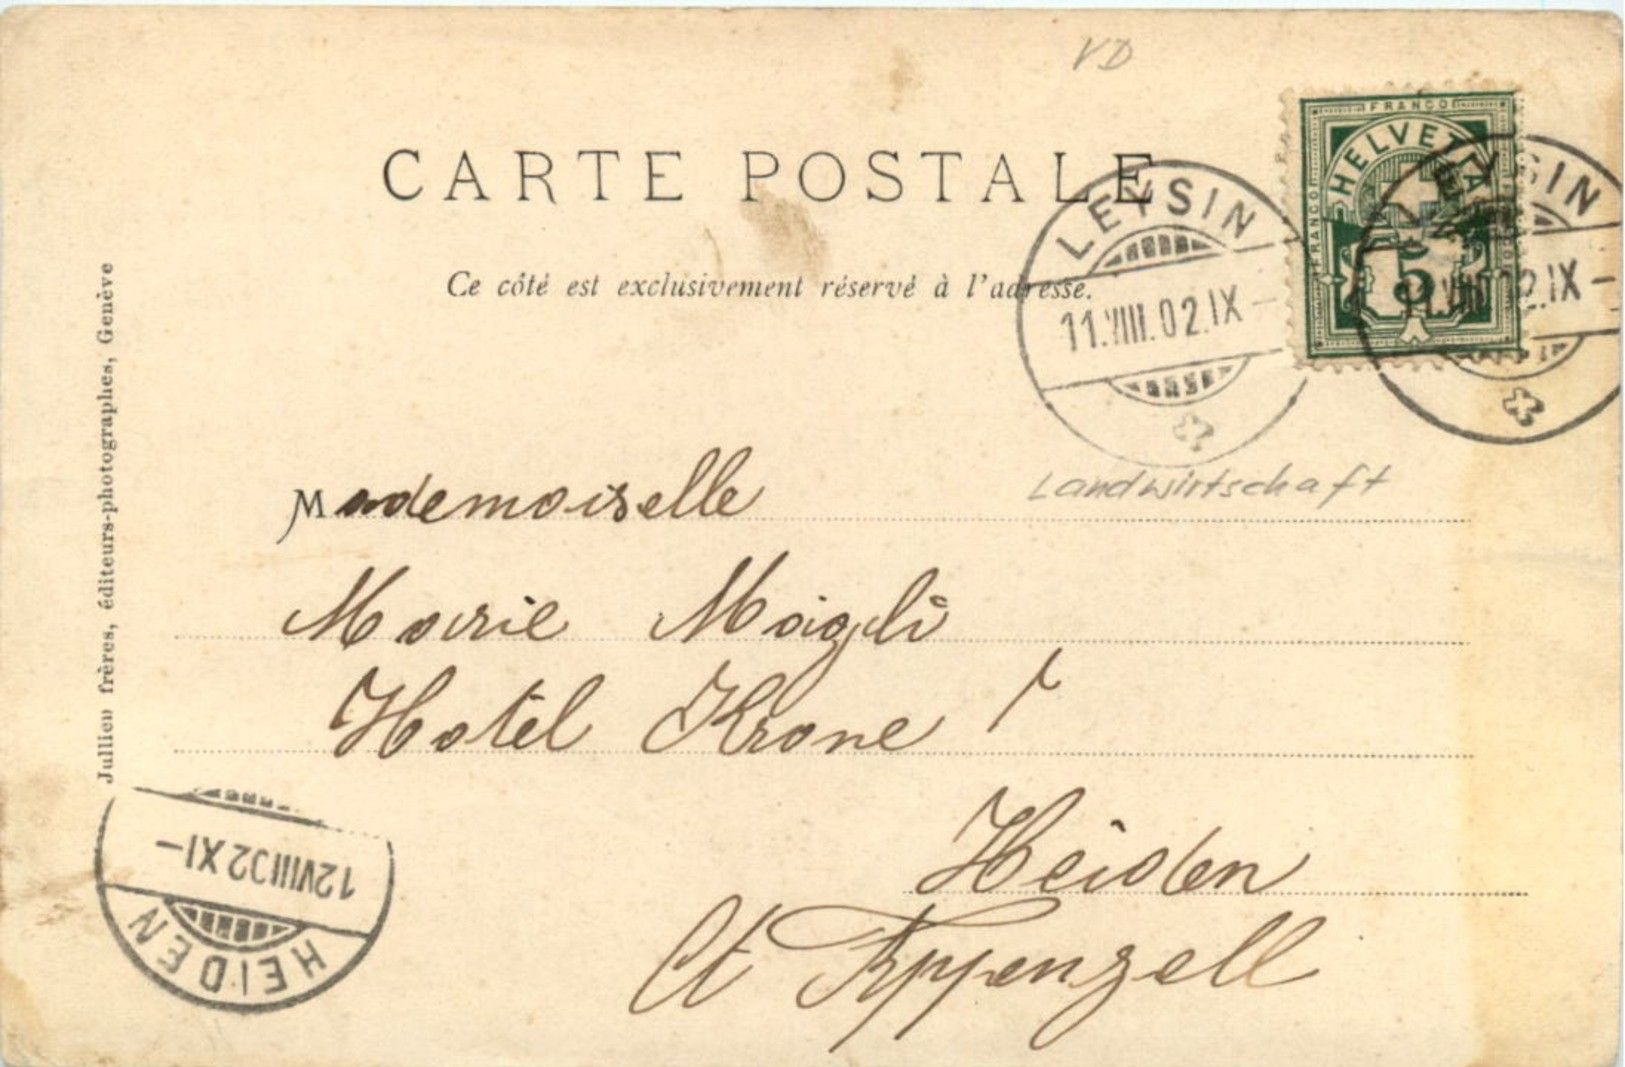 VD
CARTE POSTALE
Ce côté est exclusivement réservé à l'adresse.
FRANCO
HELVETIA
FRANCO
5
LEYSIN
11.VIII.02.IX-
LEYSIN
11.VIII.02.IX-
Landwirtschaft
Mademoiselle
Marie Mägli
Hotel Krone
Heiden
Ct Appenzell
Jullien frères, éditeurs-photographes, Genève
12VIII02XI-
HEIDEN